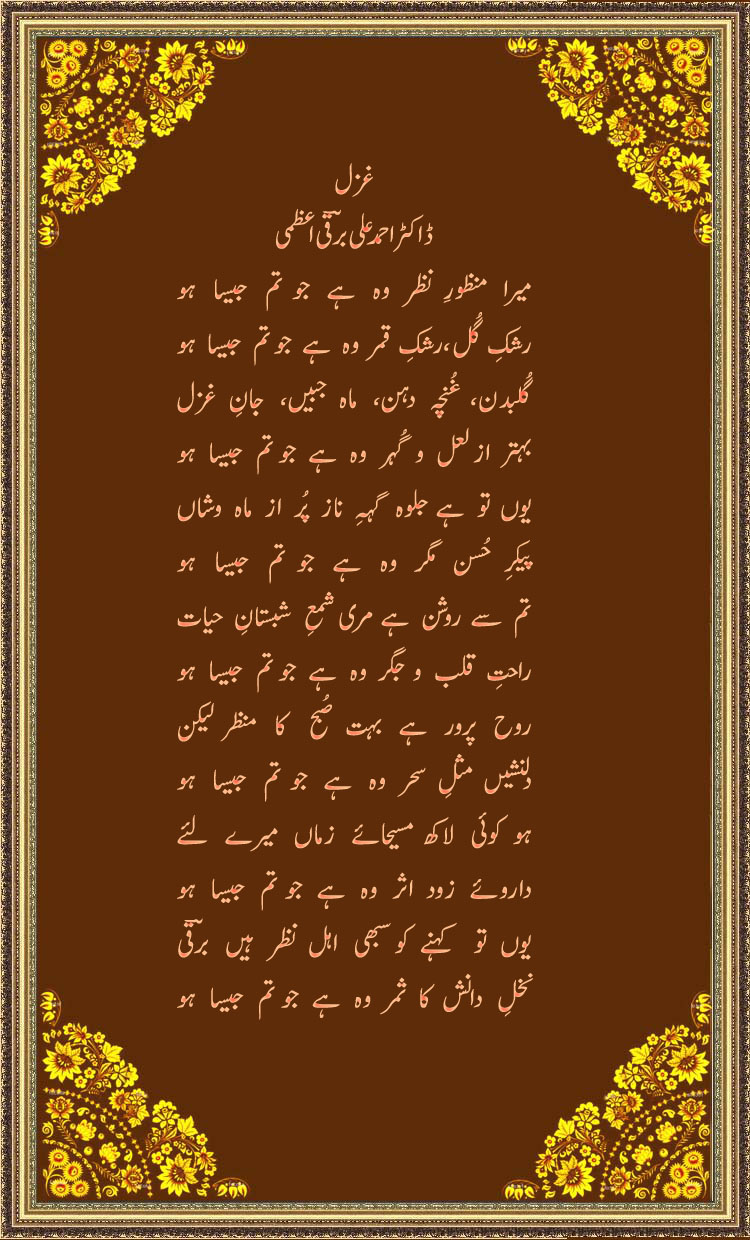 غزل
ڈاکٹر احمد علی برقیؔ اعظمی
میرا منظورِ نظر وہ ہے جو تم جیسا ہو
رشکِ گُل،رشکِ قمر وہ ہے جو تم جیسا ہو
گُلبدن، غُنچہ دہن، ماہ جبیں، جانِ غزل
بہتر از لعل و گُہر وہ ہے جو تم جیسا ہو
یوں تو ہے جلوہ گہہِ ناز پُر از ماہ وشاں
پیکرِ حُسن مگر وہ ہے جو تم جیسا ہو
تم سے روشن ہے مری شمعِ شبستانِ حیات
راحتِ قلب و جگر وہ ہے جو تم جیسا ہو
روح پرور ہے بہت صُبح کا منظر لیکن
دلنشیں مثلِ سحر وہ ہے جو تم جیسا ہو
ہو کوئی لاکھ مسیحائے زماں میرے لئے
داروئے زود اثر وہ ہے جو تم جیسا ہو
یوں تو کہنے کو سبھی اہل نظر ہیں برقیؔ
نخلِ دانش کا ثمر وہ ہے جو تم جیسا ہو